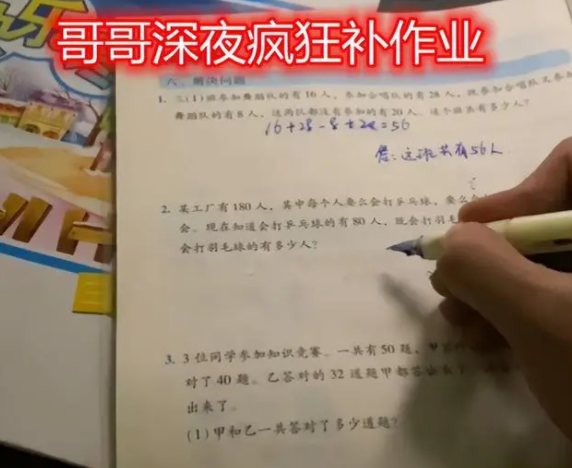 乐
哥哥深夜疯狂补作业
六、解决问题
1. 三(1)班参加舞蹈队的有16人，参加合唱队的有28人，既参加合唱队又参
舞蹈队的有8人，这两队都没有参加的有20人。这个班共有多少人？
16+28-8+20=56
答：这班共有56人
2. 某工厂有180人，其中每个人要么会打乒乓球，要么会
会。现在知道会打乒乓球的有80人，既会打羽毛
会打羽毛球的有多少人？
3. 3位同学参加知识竞赛。一共有50题，甲
对了40题。乙答对的32道题甲都答出来了
出来了。
(1)甲和乙一共答对了多少道题？